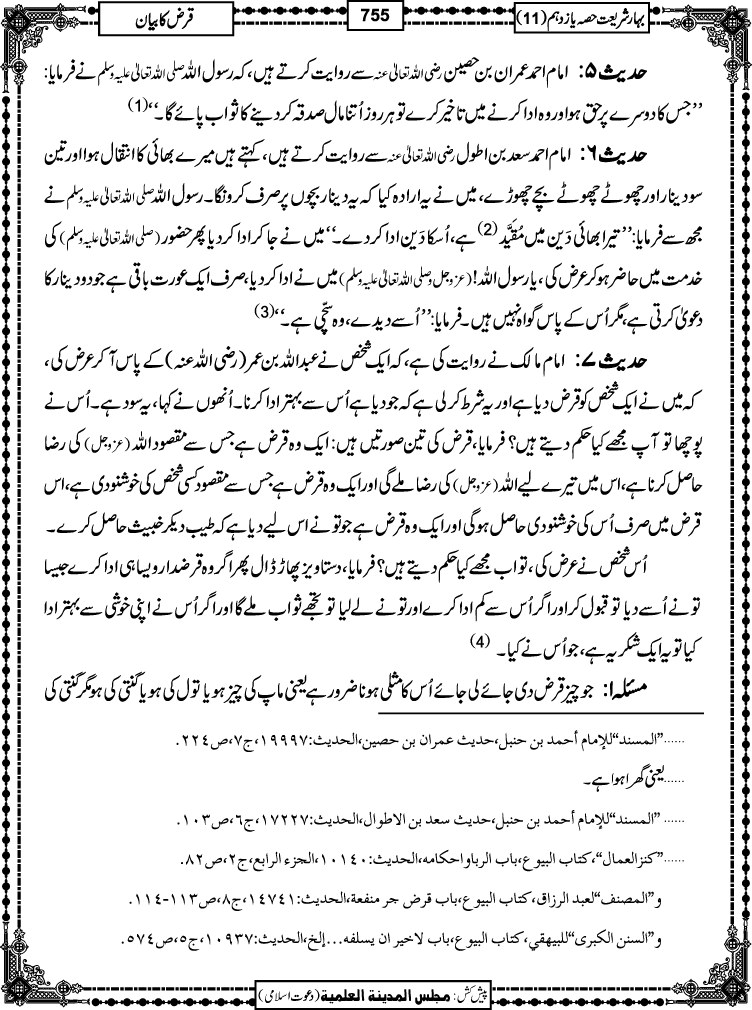 بہارِ شریعت حصہ یازدہم (11)
755
قرض کا بیان
حدیث ۵: امام احمد عمران بن حصین رضی اللہ تعالیٰ عنہ سے روایت کرتے ہیں، کہ رسول اللہ صلی اللہ تعالیٰ علیہ وسلم نے فرمایا:
’’جس کا دوسرے پر حق ہو اور وہ ادا کرنے میں تاخیر کرے تو ہر روز اُتنا مال صدقہ کردینے کا ثواب پائے گا۔‘‘(1)
حدیث ۶: امام احمد سعد بن اطول رضی اللہ تعالیٰ عنہ سے روایت کرتے ہیں، کہتے ہیں میرے بھائی کا انتقال ہوا اور تین
سو دینار اور چھوٹے چھوٹے بچے چھوڑے، میں نے یہ ارادہ کیا کہ یہ دینار بچوں پر صرف کرونگا۔ رسول اللہ صلی اللہ تعالیٰ علیہ وسلم نے
مجھ سے فرمایا: ’’تیرا بھائی دَین میں مُقَیَّد (2) ہے، اُسکا دَین ادا کردے۔‘‘ میں نے جاکر ادا کر دیا پھر حضور (صلی اللہ تعالیٰ علیہ وسلم) کی
خدمت میں حاضر ہو کر عرض کی، یا رسول اللہ! (عزوجل وصلی اللہ تعالیٰ علیہ وسلم) میں نے ادا کر دیا، صرف ایک عورت باقی ہے جو دو دینار کا
دعویٰ کرتی ہے، مگر اُس کے پاس گواہ نہیں ہیں۔ فرمایا: ’’اُسے دیدے، وہ سچّی ہے۔‘‘(3)
حدیث ۷: امام مالک نے روایت کی ہے، کہ ایک شخص نے عبداللہ بن عمر (رضی اللہ عنہ) کے پاس آکر عرض کی،
کہ میں نے ایک شخص کو قرض دیا ہے اور یہ شرط کر لی ہے کہ جو دیا ہے اُس سے بہتر ادا کرنا۔ اُنھوں نے کہا، یہ سود ہے۔ اُس نے
پوچھا تو آپ مجھے کیا حکم دیتے ہیں؟ فرمایا، قرض کی تین صورتیں ہیں: ایک وہ قرض ہے جس سے مقصود اللہ (عزوجل) کی رضا
حاصل کرنا ہے، اس میں تیرے لیے اللہ (عزوجل) کی رضا ملے گی اور ایک وہ قرض ہے جس سے مقصود کسی شخص کی خوشنودی ہے، اس
قرض میں صرف اُس کی خوشنودی حاصل ہوگی اور ایک وہ قرض ہے جو تو نے اس لیے دیا ہے کہ طیب دیکر خبیث حاصل کرے۔
اُس شخص نے عرض کی، تو اب مجھے کیا حکم دیتے ہیں؟ فرمایا، دستاویز پھاڑ ڈال پھر اگر وہ قرضدار ویسا ہی ادا کرے جیسا
تو نے اُسے دیا تو قبول کر اور اگر اُس سے کم ادا کرے اور تو نے لے لیا تو تجھے ثواب ملے گا اور اگر اُس نے اپنی خوشی سے بہتر ادا
کیا تو یہ ایک شکریہ ہے، جو اُس نے کیا۔ (4)
مسئلہ ۱: جو چیز قرض دی جائے لی جائے اُس کا مثلی ہونا ضرور ہے یعنی ماپ کی چیز ہو یا تول کی ہو یا گنتی کی ہو مگر گنتی کی
......’’المسند‘‘للإمام أحمد بن حنبل،حديث عمران بن حصين،الحديث:١٩٩٩٧،ج٧،ص٢٢٤.
......یعنی گھرا ہوا ہے۔
......’’المسند‘‘للإمام أحمد بن حنبل،حديث سعد بن الاطوال،الحديث:١٧٢٢٧،ج٦،ص١٠٣.
......’’كنزالعمال‘‘،كتاب البيوع،باب الرباواحكامه،الحديث:١٠١٤٠،الجزء الرابع،ج٢،ص٨٢.
و’’المصنف‘‘لعبد الرزاق،كتاب البيوع،باب قرض جر منفعة،الحديث:١٤٧٤١،ج٨،ص١١٣-١١٤.
و’’السنن الكبرى‘‘للبيهقي،كتاب البيوع،باب لاخير ان يسلفه...إلخ،الحديث:١٠٩٣٧،ج٥،ص٥٧٤.
پیش کش: مجلس المدينة العلمية (دعوتِ اسلامی)